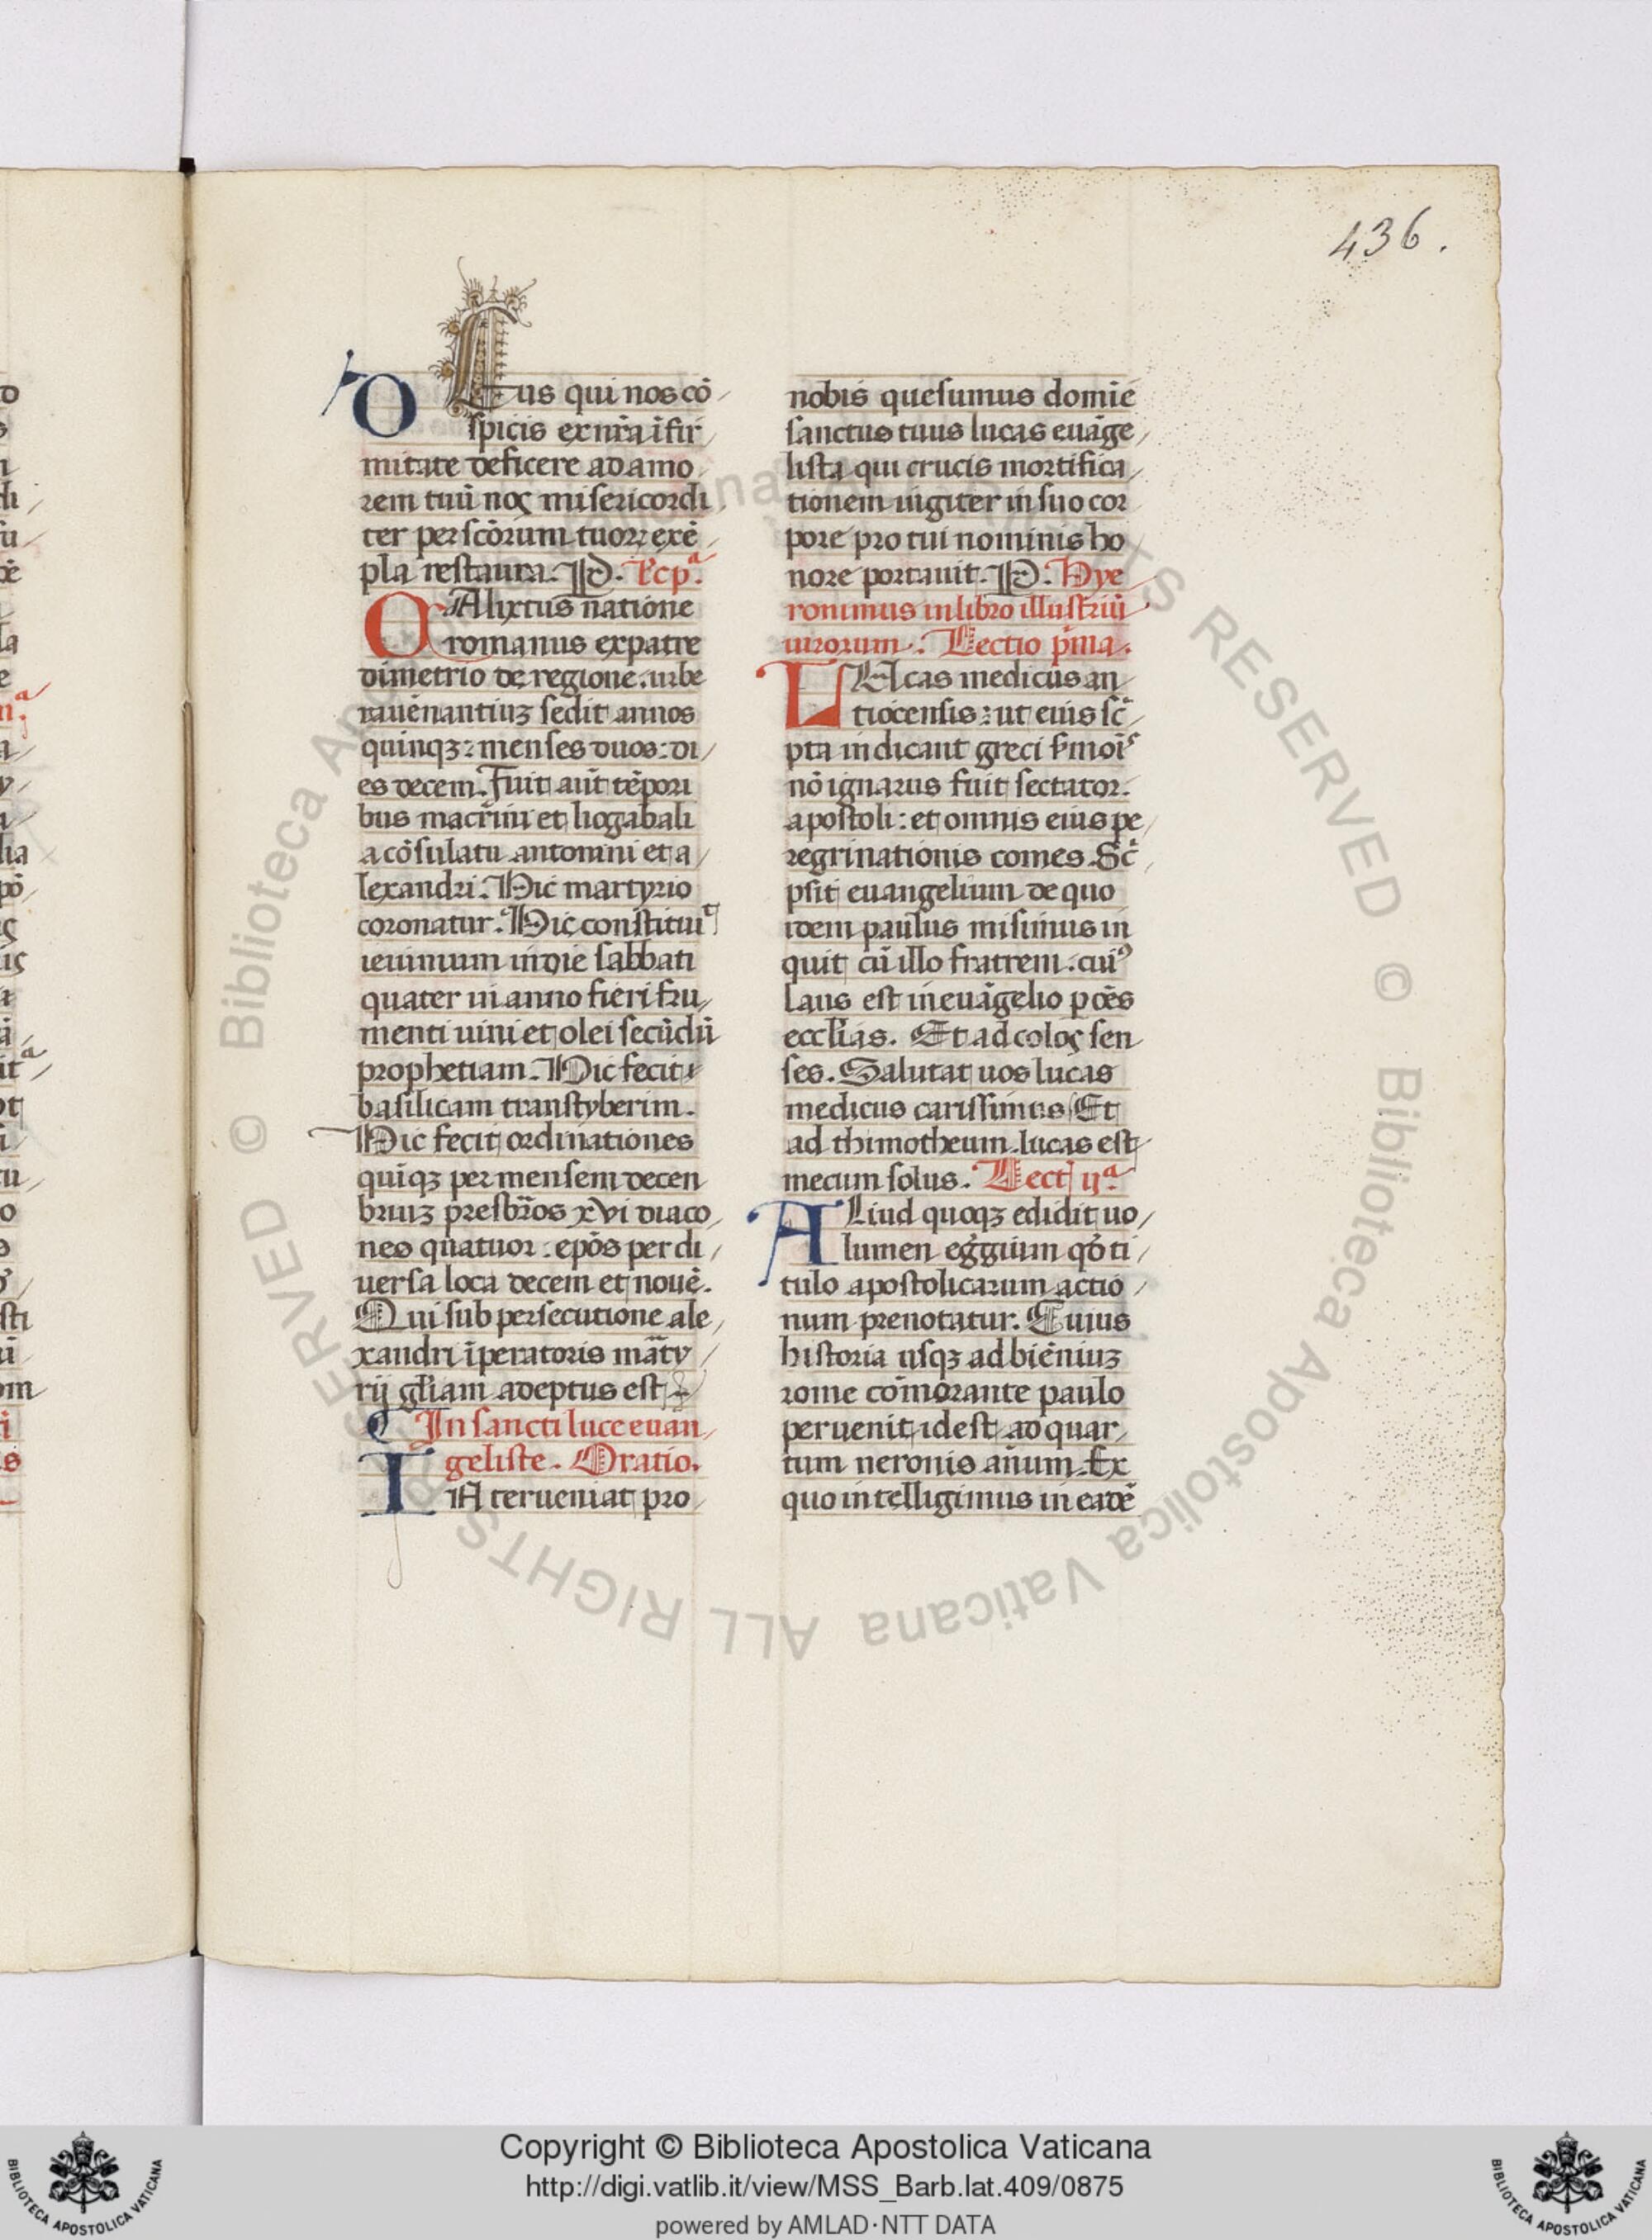 436.
DEus qui nos cō
spicis ex nr̄a ifir
mitate deficere ad amo
rem tuū nos misericordi
ter per scōrum tuoꝝ exē
pla restaura. P. Rcpͣ.
CAlixtus natione
romanus ex patre
dimetrio de regione. urbe
rauēnantiuꝫ sedit annos
quinqꝫ: menses duos: di
es decem. Fuit aut̄ tēpori
bus macrini et liogabali
a cōsulatu antonini et a
lexandri. Hic martyrio
coronatur. Hic constituit
ieiunium in die sabbati
quater in anno fieri fru
menti uini et olei secūdū
prophetiam. Hic fecit
basilicam transtyberim.
Hic fecit ordinationes
quiqꝫ per mensem decen
briuꝫ presbr̄os xvi diaco
nes quatuor: epōs per di
uersa loca decem et nouē.
Qui sub persecutione ale
xandri īperatoris mar̄ty
rij gl̄iam adeptus est
In sancti luce euan
geliste. Oratio.
INterueniat pro
nobis quesumus domīe
sanctus tuus lucas euāge
lista qui crucis mortifica
tionem iugiter in suo cor
pore pro tui nominis ho
nore portauit. P. Hye
ronimus in libro illustriū
uirorum. Lectio pͥma.
LUcas medicus an
tiocensis: ut eius scͥ
pta indicant greci s̄moīs
nō ignarus fuit sectator
apostoli: et omnis eius pe
regrinationis comes. Scͥ
psit euangelium de quo
idem paulus misimus in
quit cū illo fratrem. cuiꝰ
laus est in euāgelio p oēs
eccl̄ias. Et ad colos sen
ses. Salutat uos lucas
medicus carissimus Et
ad thimotheum. lucas est
mecum solus. Lect ijͣ.
ALiud quoqꝫ edidit uo
lumen egͥgium qđ ti
tulo apostolicarum actio
num prenotatur. Cuius
historia usqꝫ ad biēniuꝫ
rome cōmorante paulo
peruenit id est ad quar
tum neronis an̄um. Ex
quo intelligimus in eadē
Copyright © Biblioteca Apostolica Vaticana
http://digi.vatlib.it/view/MSS_Barb.lat.409/0875
powered by AMLAD·NTT DATA